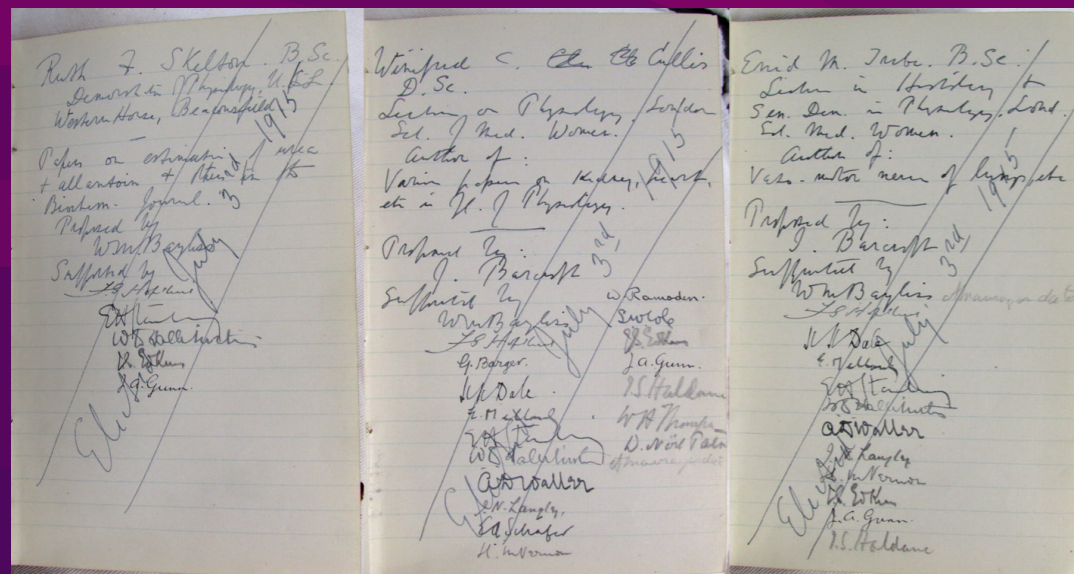 Ruth F. Skelton. B.Sc.
Demonstr. in Physiology, U.C.L.
Western House, Beaconsfield
Papers on estimation of urea
+ allantoin + in the
Biochem. Journal.
Proposed by
W M Bayliss
Supported by
F G Hopkins
E H Starling
W D Halliburton
J. A. Gunn.
Elected July 3rd 1915
Winifred C. Cullis
D. Sc.
Lecturer on Physiology. London
Sch. of Med. Women.
Author of :
Various papers on Kidney, heart,
etc in Jl. of Physiology.
Proposed by :
J. Barcroft
Supported by
W M Bayliss
F G Hopkins
G. Barger.
H H Dale.
E. Mellanby
E H Starling
W D Halliburton
A D Waller
J. N. Langley,
E A Schäfer
H. M Vernon
W. Ramsden.
S W Cole
J. A. Gunn.
J S Haldane
W H Thompson
D. Noël Paton
Elected July 3rd 1915
Enid M. Tribe. B. Sc.
Lecturer in Histology +
Sen. Dem. in Physiology. Lond.
Sch. Med. Women.
Author of :
Vaso-motor nerves of lungs etc
Proposed by :
J. Barcroft
Supported by
W M Bayliss
F G Hopkins
H H Dale
E. Mellanby
E H Starling
W D Halliburton
A D Waller
J N Langley
H. M Vernon
J. A. Gunn.
J. S. Haldane
Elected July 3rd, 1915